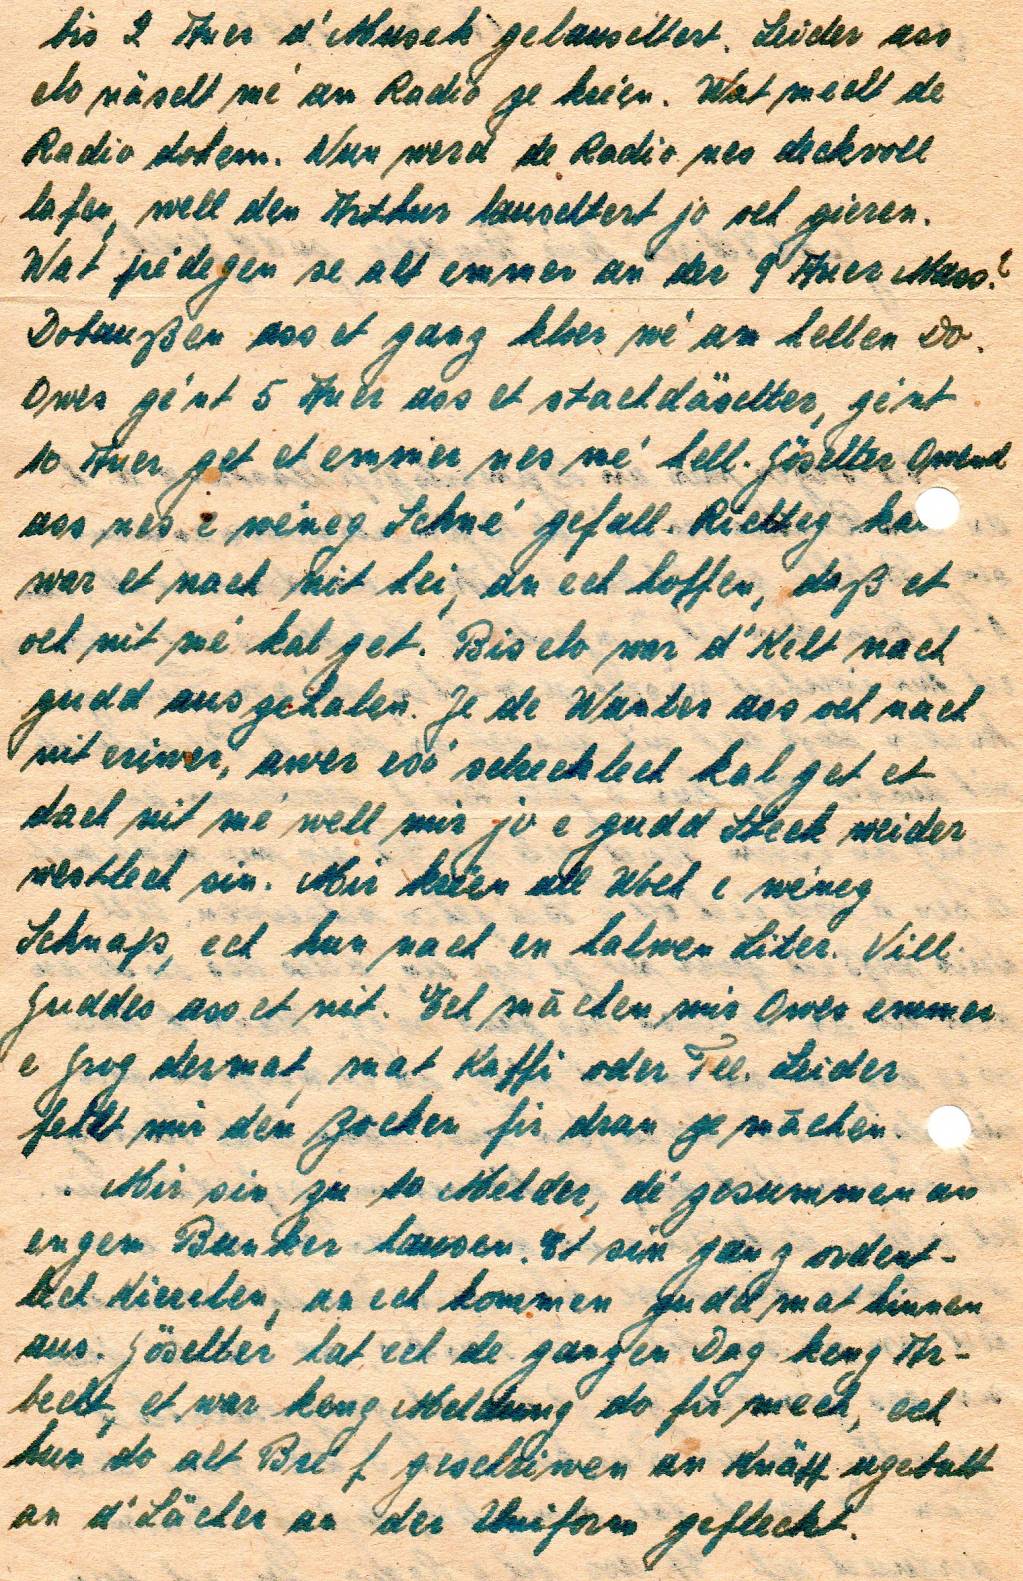 bis 2 Auer d'Musek gelauschtert. Leider ass
elo näscht mé am Radio ze kréien. Wat mecht de
Radio dohem. Nun werd de Radio nes deckvoll
lafen, well den Arthur lauschtert jo och gieren.
Wat priedegen se alt emmer an der 9 Auer Mass?
Dobaußen ass et ganz kloer wé am hellen Do.
Owes gént 5 Auer ass et stackdäschter, gént
10 Auer get et emmer nes mé hell. Göschter Owend
ass nes e wéneg Schné gefall. Richteg ka
war et nach nit hei, an ech hoffen, daß et
och nit mé kal get. Bis elo war d'Kelt nach
gudd auszehalen. Je de Wanter ass och nach
nit eriwer, awer esó schrecklech kal get et
dach nit mé well mir jo e gudd Steck weider
westlech sin. Mir kréien all Woch e wéneg
Schnaps, ech hun nach en halwen Liter. Vill
Guddes ass et nit. Ech māchen mir Owes emmer
e Grog dermat, mat Kaffi oder Tee. Leider
fehlt mir den Zocker fir dran ze māchen.
Mir sin zu 10 Melder, dé zesummen an
engem Bunker hausen. Et sin ganz ordent-
lech Kierelen, an ech kommen gudd mat hinnen
aus. Göschter hat ech de ganzen Dag keng Ar-
becht, et war keng Meldung do fir mech, ech
hun do alt Bréf geschriwen an Knäff ugebutt
an d'Lächer an der Uniform gefleckt.